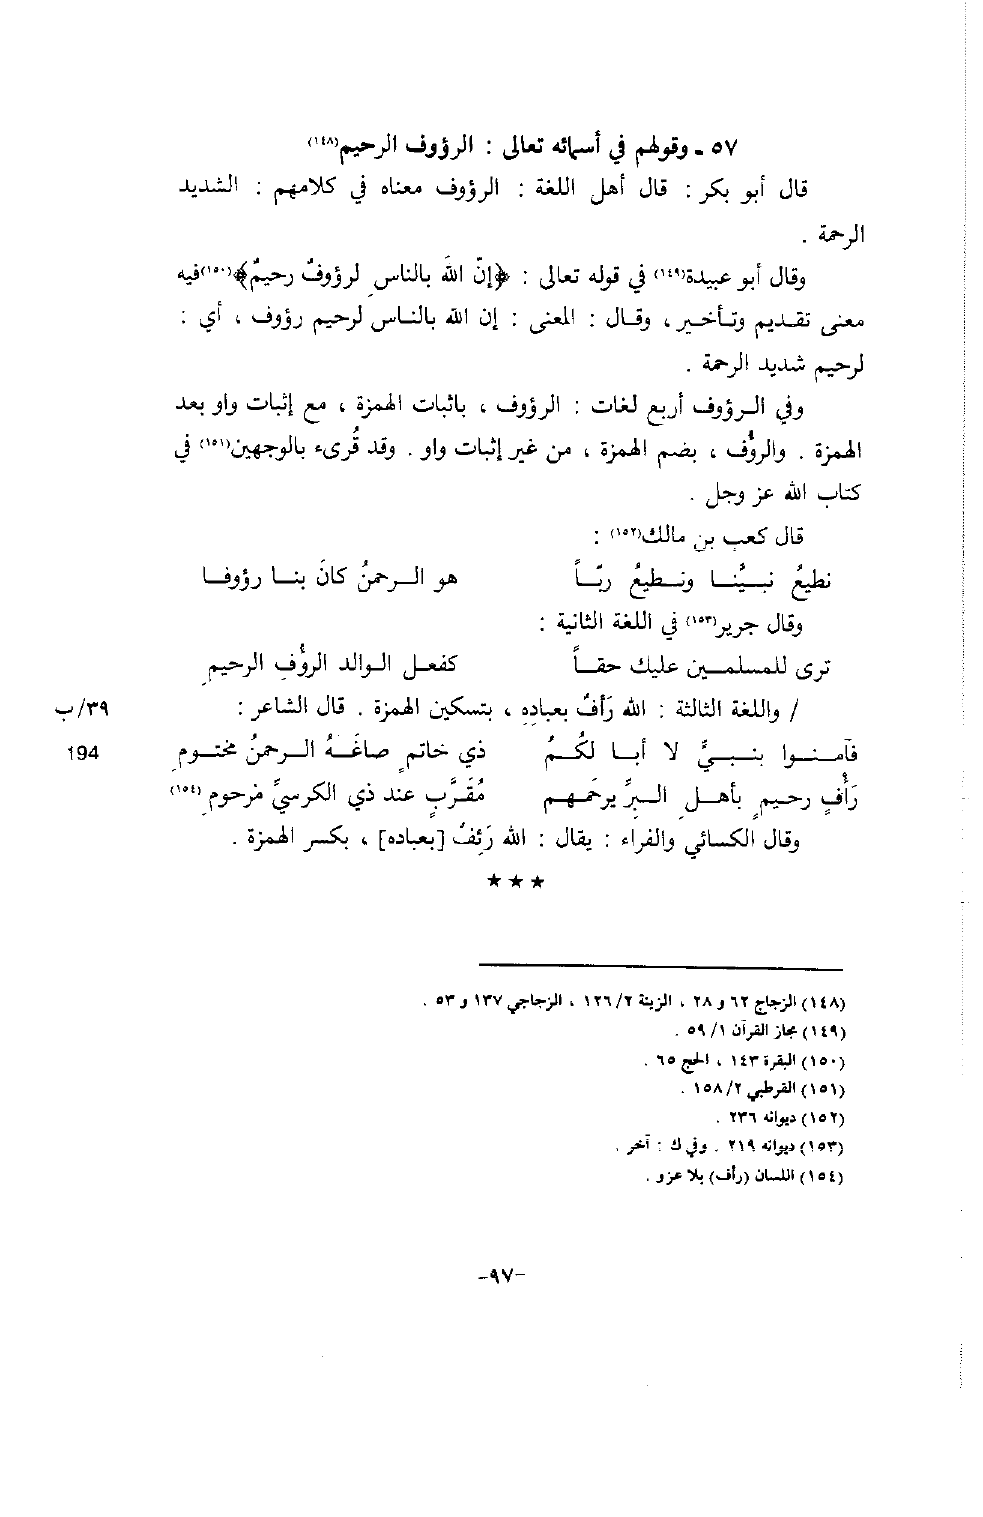 ٥٧ ـ وقولهم في أسمائه تعالى : الرؤوف الرحيم(١٤٨)
قال أبو بكر : قال أهل اللغة : الرؤوف معناه في كلامهم : الشديد
الرحمة .
وقال أبو عبيدة(١٤٩) في قوله تعالى : ﴿إنّ اللهَ بالناسِ لرؤوفٌ رحيمٌ﴾(١٥٠)فيه
معنى تقديم وتأخير ، وقال : المعنى : إن الله بالناس لرحيم رؤوف ، أي :
لرحيم شديد الرحمة .
وفي الرؤوف أربع لغات : الرؤوف ، باثبات الهمزة ، مع إثبات واو بعد
الهمزة . والرؤُف ، بضم الهمزة ، من غير إثبات واو . وقد قُرىء بالوجهين(١٥١) في
كتاب الله عز وجل .
قال كعب بن مالك(١٥٢) :
نطيعُ نبيَّنا ونطيعُ ربّاً هو الرحمنُ كانَ بنا رؤوفا
وقال جرير(١٥٣) في اللغة الثانية :
ترى للمسلمين عليك حقاً كفعل الوالد الرؤُفِ الرحيمِ
/ واللغة الثالثة : الله رَأفٌ بعبادِه ، بتسكين الهمزة . قال الشاعر : ٣٩/ب
فآمنوا بنبيٍّ لا أبا لكُمُ ذي خاتمٍ صاغَهُ الرحمنُ مختومِ 194
رَأْفٍ رحيمٍ بأهلِ البرِّ يرحَمُهم مُقَرَّبٍ عند ذي الكرسيِّ مَرحومِ(١٥٤)
وقال الكسائي والفراء : يقال : الله رَئِفٌ [بعباده] ، بكسر الهمزة .
★ ★ ★
(١٤٨) الزجاج ٦٢ و ٢٨ ، الزينة ٢/ ١٢٦ ، الزجاجي ١٣٧ و ٥٣ .
(١٤٩) مجاز القرآن ١/ ٥٩ .
(١٥٠) البقرة ١٤٣ ، الحج ٦٥ .
(١٥١) القرطبي ٢/ ١٥٨ .
(١٥٢) ديوانه ٢٣٦ .
(١٥٣) ديوانه ٢١٩ . وفي ك : آخر .
(١٥٤) اللسان (رأف) بلا عزو .
-٩٧-